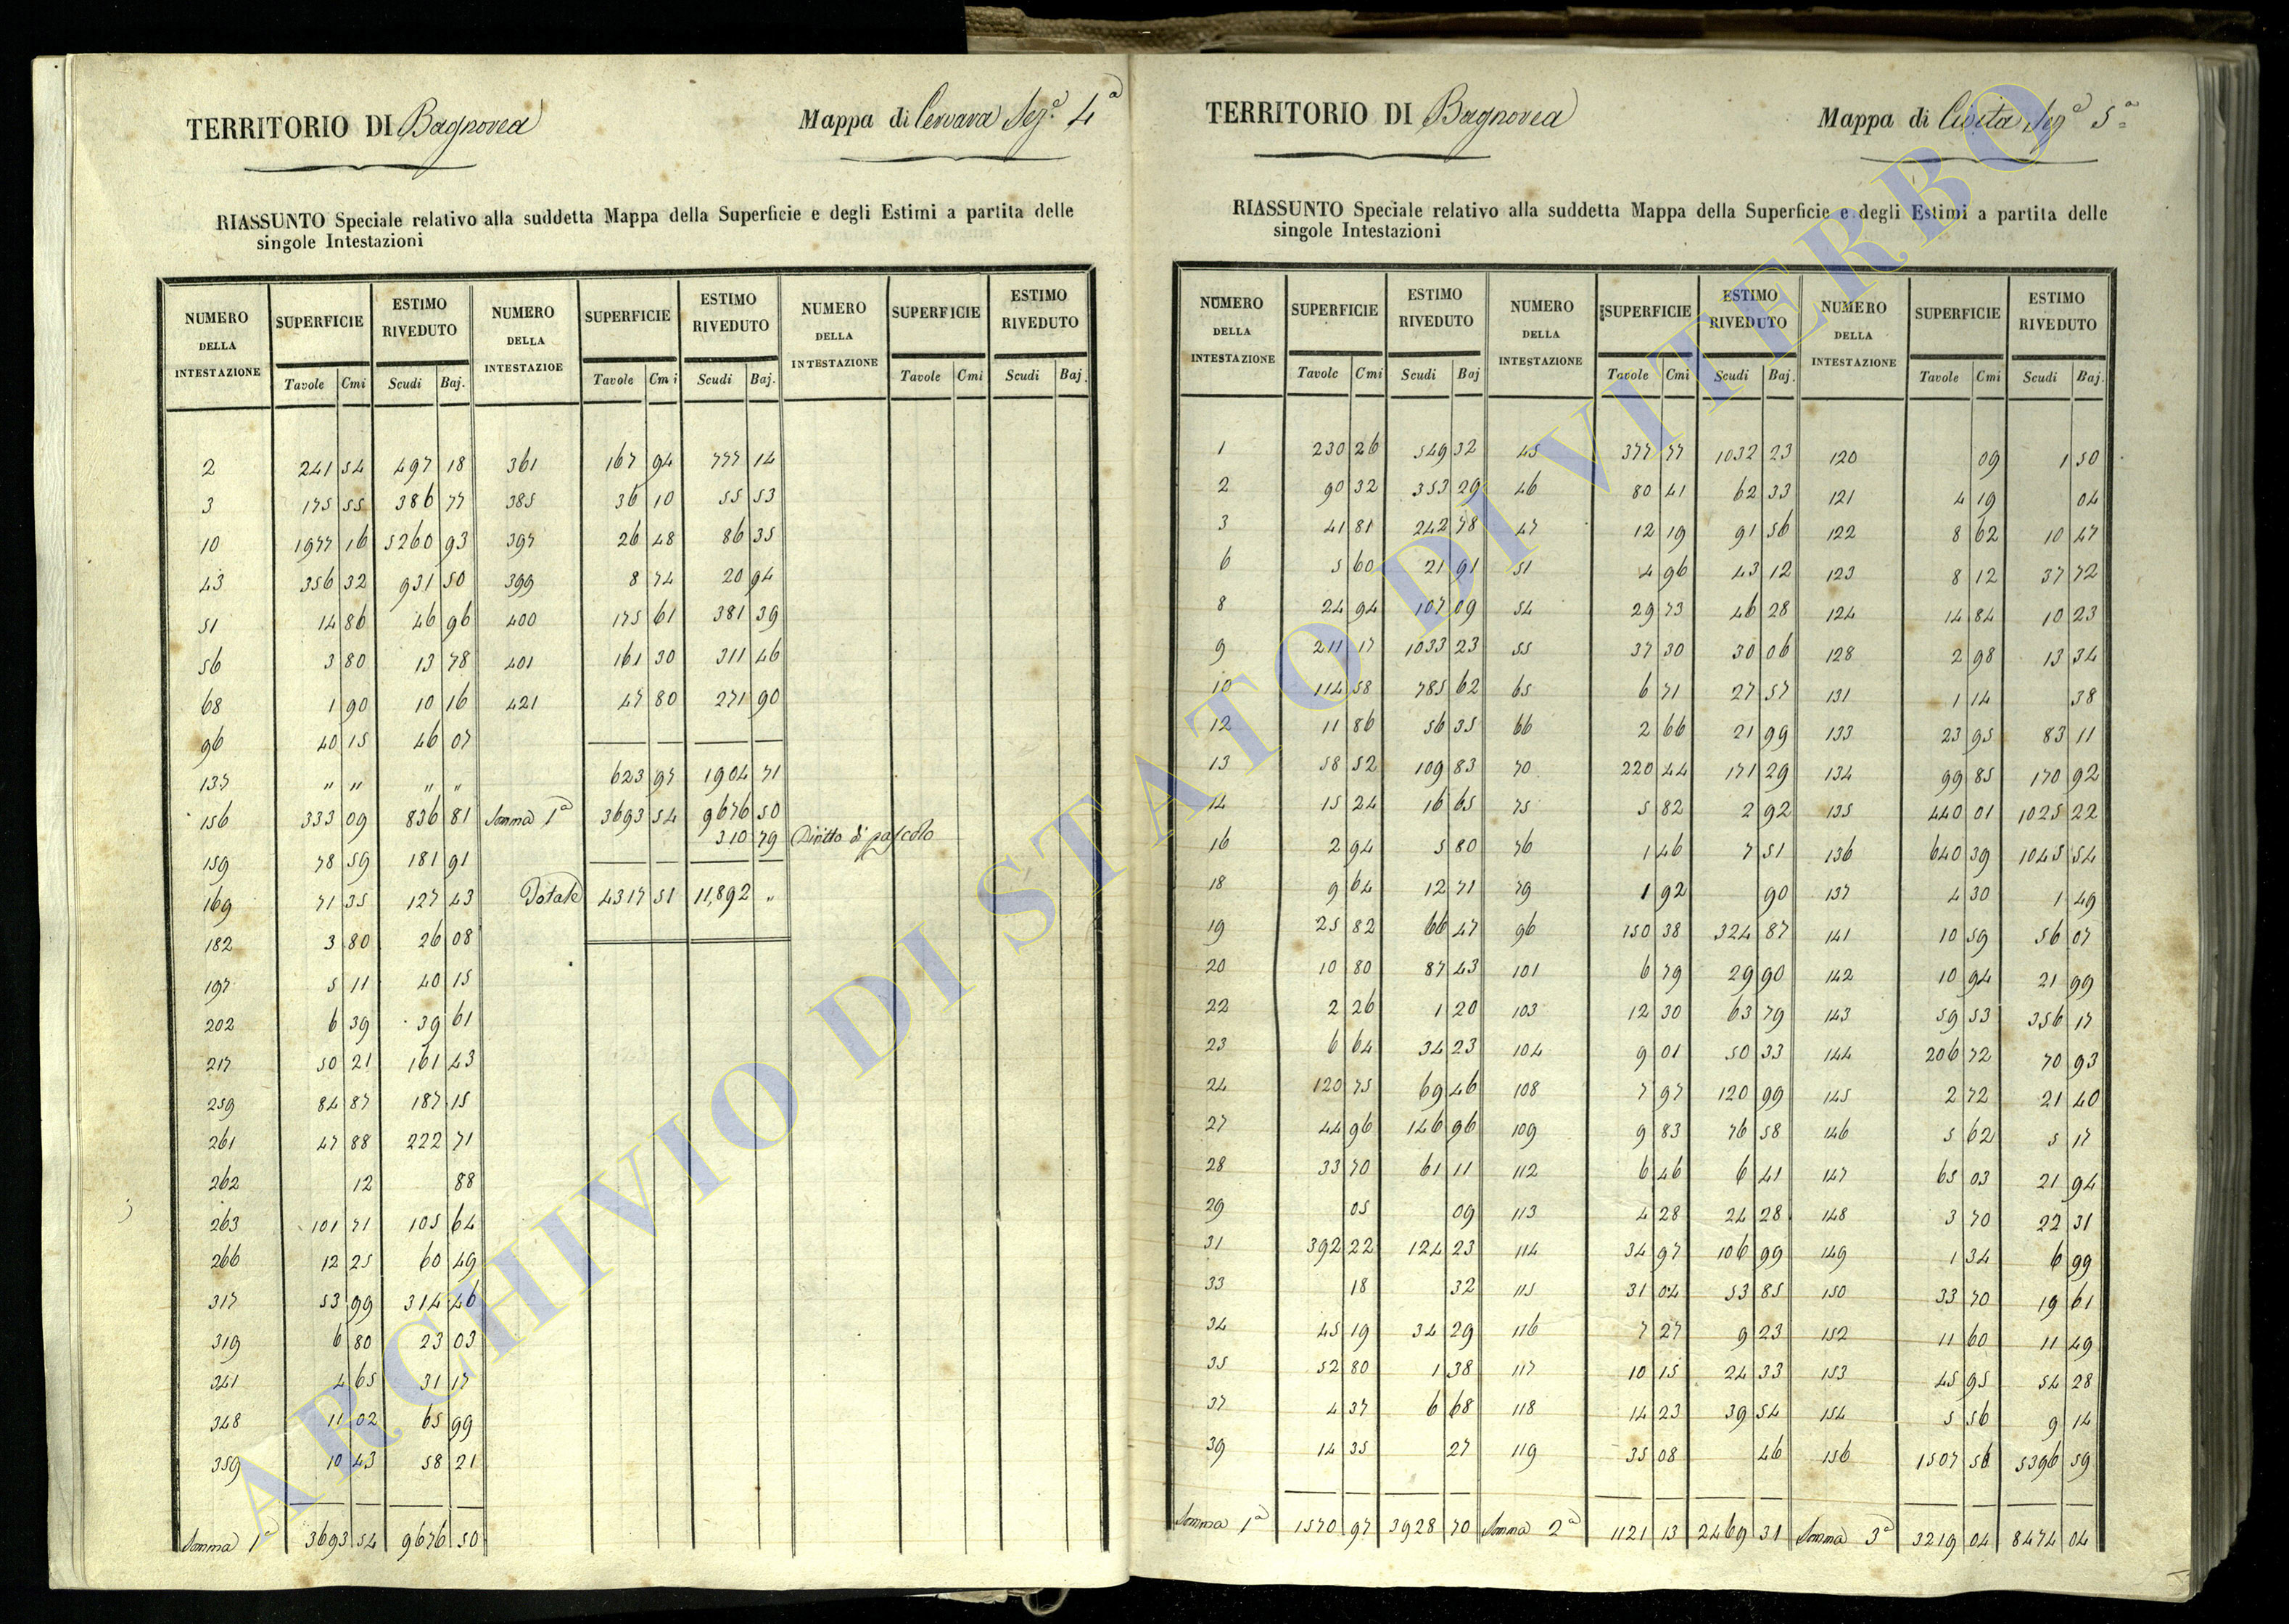 TERRITORIO DI Bagnorea
Mappa di Cervara Sez.ª 4ª
RIASSUNTO Speciale relativo alla suddetta Mappa della Superficie e degli Estimi a partita delle
singole Intestazioni
NUMERO DELLA INTESTAZIONE SUPERFICIE ESTIMO RIVEDUTO NUMERO DELLA INTESTAZIOE SUPERFICIE ESTIMO RIVEDUTO NUMERO DELLA INTESTAZIONE SUPERFICIE ESTIMO RIVEDUTO
Tavole Cmi Scudi Baj. Tavole Cmi Scudi Baj. Tavole Cmi Scudi Baj.
2 241 54 497 18 361 167 94 777 14
3 175 55 386 77 385 36 10 55 53
10 1977 16 5260 93 397 26 48 86 35
43 356 32 931 50 399 8 74 20 94
51 14 86 46 96 400 175 61 381 39
56 3 80 13 78 401 161 30 311 46
68 1 90 10 16 421 47 80 271 90
96 40 15 46 07
137 " " " " 623 97 1904 71
156 333 09 836 81 Somma 1ª 3693 54 9676 50
310 79 Diritto di pascolo
159 78 59 181 91
169 71 35 127 43 Totale 4317 51 11,892 "
182 3 80 26 08
197 5 11 40 15
202 6 39 39 61
217 50 21 161 43
259 84 87 187 15
261 47 88 222 71
262 12 88
263 101 71 105 64
266 12 25 60 49
317 53 99 314 46
319 6 80 23 03
341 4 65 31 17
348 11 02 65 99
359 10 43 58 21
Somma 1ª 3693 54 9676 50
TERRITORIO DI Bagnorea
Mappa di Civita Sezª 5ª
RIASSUNTO Speciale relativo alla suddetta Mappa della Superficie e degli Estimi a partita delle
singole Intestazioni
NUMERO DELLA INTESTAZIONE SUPERFICIE ESTIMO RIVEDUTO NUMERO DELLA INTESTAZIONE SUPERFICIE ESTIMO RIVEDUTO NUMERO DELLA INTESTAZIONE SUPERFICIE ESTIMO RIVEDUTO
Tavole Cmi Scudi Baj Tavole Cmi Scudi Baj. Tavole Cmi Scudi Baj.
1 230 26 549 32 45 377 77 1032 23 120 09 1 50
2 90 32 353 29 46 80 41 62 33 121 4 19 04
3 41 81 242 78 47 12 19 91 56 122 8 62 10 47
6 5 60 21 91 51 4 96 43 12 123 8 12 37 72
8 24 94 107 09 54 29 73 46 28 124 14 84 10 23
9 211 17 1033 23 55 37 30 30 06 128 2 98 13 34
10 114 58 785 62 65 6 71 27 57 131 1 14 38
12 11 86 56 35 66 2 66 21 99 133 23 95 83 11
13 58 52 109 83 70 220 44 171 29 134 99 85 170 92
14 15 24 16 65 75 5 82 2 92 135 440 01 1025 22
16 2 94 5 80 76 1 46 7 51 136 640 39 1045 54
18 9 64 12 71 79 1 92 90 137 4 30 1 49
19 25 82 66 47 96 150 38 324 87 141 10 59 56 07
20 10 80 87 43 101 6 79 29 90 142 10 94 21 99
22 2 26 1 20 103 12 30 63 79 143 59 53 356 17
23 6 64 34 23 104 9 01 50 33 144 206 72 70 93
24 120 75 69 46 108 7 97 120 99 145 2 72 21 40
27 44 96 146 96 109 9 83 76 58 146 5 62 5 17
28 33 70 61 11 112 6 46 6 41 147 65 03 21 94
29 05 09 113 4 28 24 28 148 3 70 22 31
31 392 22 124 23 114 34 97 106 99 149 1 34 6 99
33 18 32 115 31 04 53 85 150 33 70 19 61
34 45 19 34 29 116 7 27 9 23 152 11 60 11 49
35 52 80 1 38 117 10 15 24 33 153 45 95 54 28
37 4 37 6 68 118 14 23 39 54 154 5 56 9 14
39 14 35 27 119 35 08 46 156 1507 56 5396 59
Somma 1ª 1570 97 3928 70 Somma 2ª 1121 13 2469 31 Somma 3ª 3219 04 8474 04
ARCHIVIO DI STATO DI VITERBO